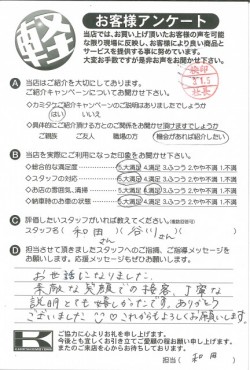 軽
お客様アンケート
当店では、お買い上げ頂いたお客様の声を可能
な限り現場に反映し、お客様により良い商品と
サービスを提供する事に努めています。
大変お手数ですが是非お声をお聞かせ下さい。
A 当店はご紹介を大切にしております。
ご紹介キャンペーンについてお聞かせ下さい。
◇カミタケご紹介キャンペーンのご説明はありましたでしょうか
はい いいえ
◇具体的にご紹介頂ける方とのご関係をお聞かせ頂けますでしょうか
ご親族 ご友人 職場の方 機会があれば紹介したい
B 当店を実際にご利用になった印象をお聞かせ下さい。
◇総合的な満足度 5.大満足 4.満足 3.ふつう 2.やや不満 1.不満
◇スタッフの対応 5.大満足 4.満足 3.ふつう 2.やや不満 1.不満
◇お店の雰囲気、清掃 5.大満足 4.満足 3.ふつう 2.やや不満 1.不満
◇納車時のお車の状態 5.大満足 4.満足 3.ふつう 2.やや不満 1.不満
C 評価したいスタッフがいれば教えてください。(複数回答可)
スタッフ名( 和田さん )( 谷川さん )
D 担当させて頂きましたスタッフへのご指摘、ご指導メッセージを
お願いします。応援メッセージもぜひお願いします!
お世話になりました。
素敵な笑顔での接客、丁寧な
説明とても嬉しかったです。ありがとう
ございました これからもよろしくお願いします。
K
ご協力に心よりお礼を申し上げます。
今後とも宜しくお引き立てご愛顧の程お願い申し上げます。
またのご来店を心からお待ちしております。
担当( 和田 )